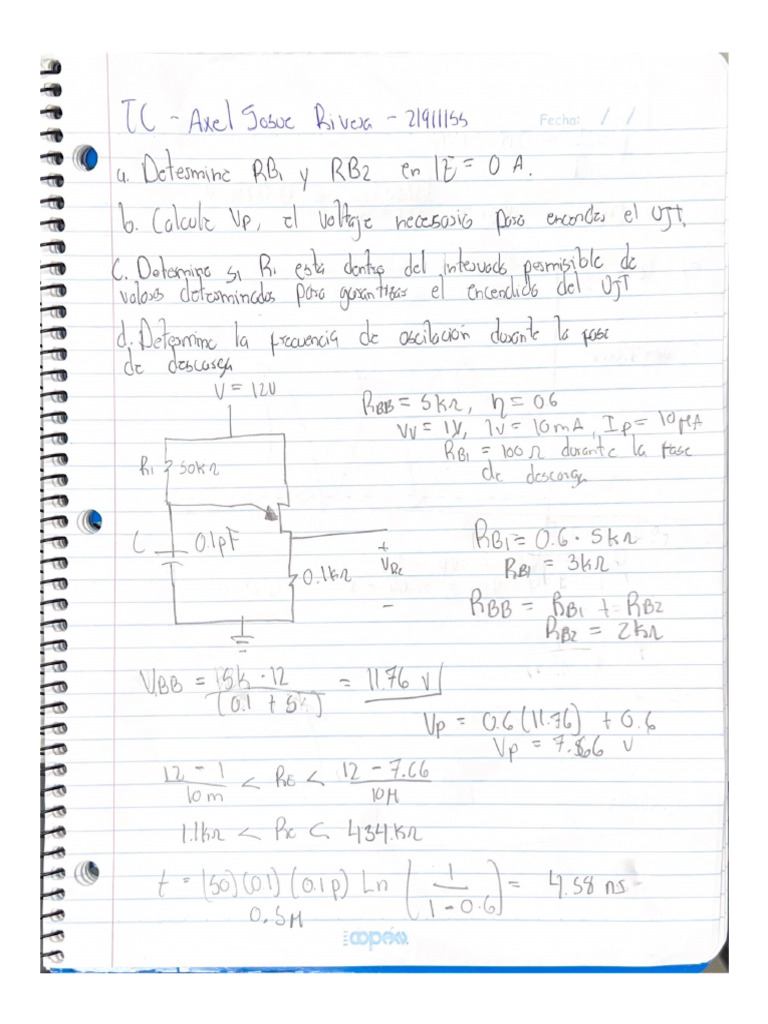 TC - Axel Josue Rivera - 21911155
Fecha: / /
a. Determine RB1 y RB2 en IE = 0 A.
b. Calcule Vp, el voltaje necesario para encender el UJT.
C. Determine si R1 está dentro del intervalo permisible de
valores determinados para garantizar el encendido del UJT
d. Determine la frecuencia de oscilación durante la fase
de descarga
V = 12V
RBB = 5kΩ, η = 06
Vv = 1V, Iv = 10mA, Ip = 10µA
RB1 = 100Ω durante la fase
de descarga
R1 50kΩ
C 0.1pF
0.1kΩ
+
VRc
-
RB1 = 0.6 · 5kΩ
RB1 = 3kΩ
RBB = RB1 + RB2
RB2 = 2kΩ
VBB = 5k · 12 / (0.1 + 5k) = 11.76 V
Vp = 0.6(11.76) + 0.6
Vp = 7.66 v
12 - 1 / 10m < RE < 12 - 7.66 / 10M
1.1kΩ < Rx < 434.kΩ
t = (50)(0.1)(0.1p) Ln (1 / 1 - 0.6) = 4.58 ns
0.5M
copán